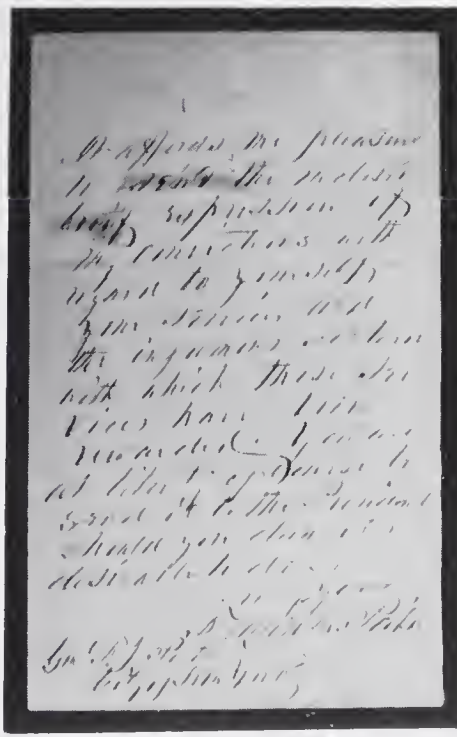 It affords me pleasure
to the enclosed
brief expression of
my convictions with
regard to yourself,
your services and
the
with which these ser
vices have been
rewarded. You are
at liberty of course to
send it to the President
should you deem it
desirable to do so.